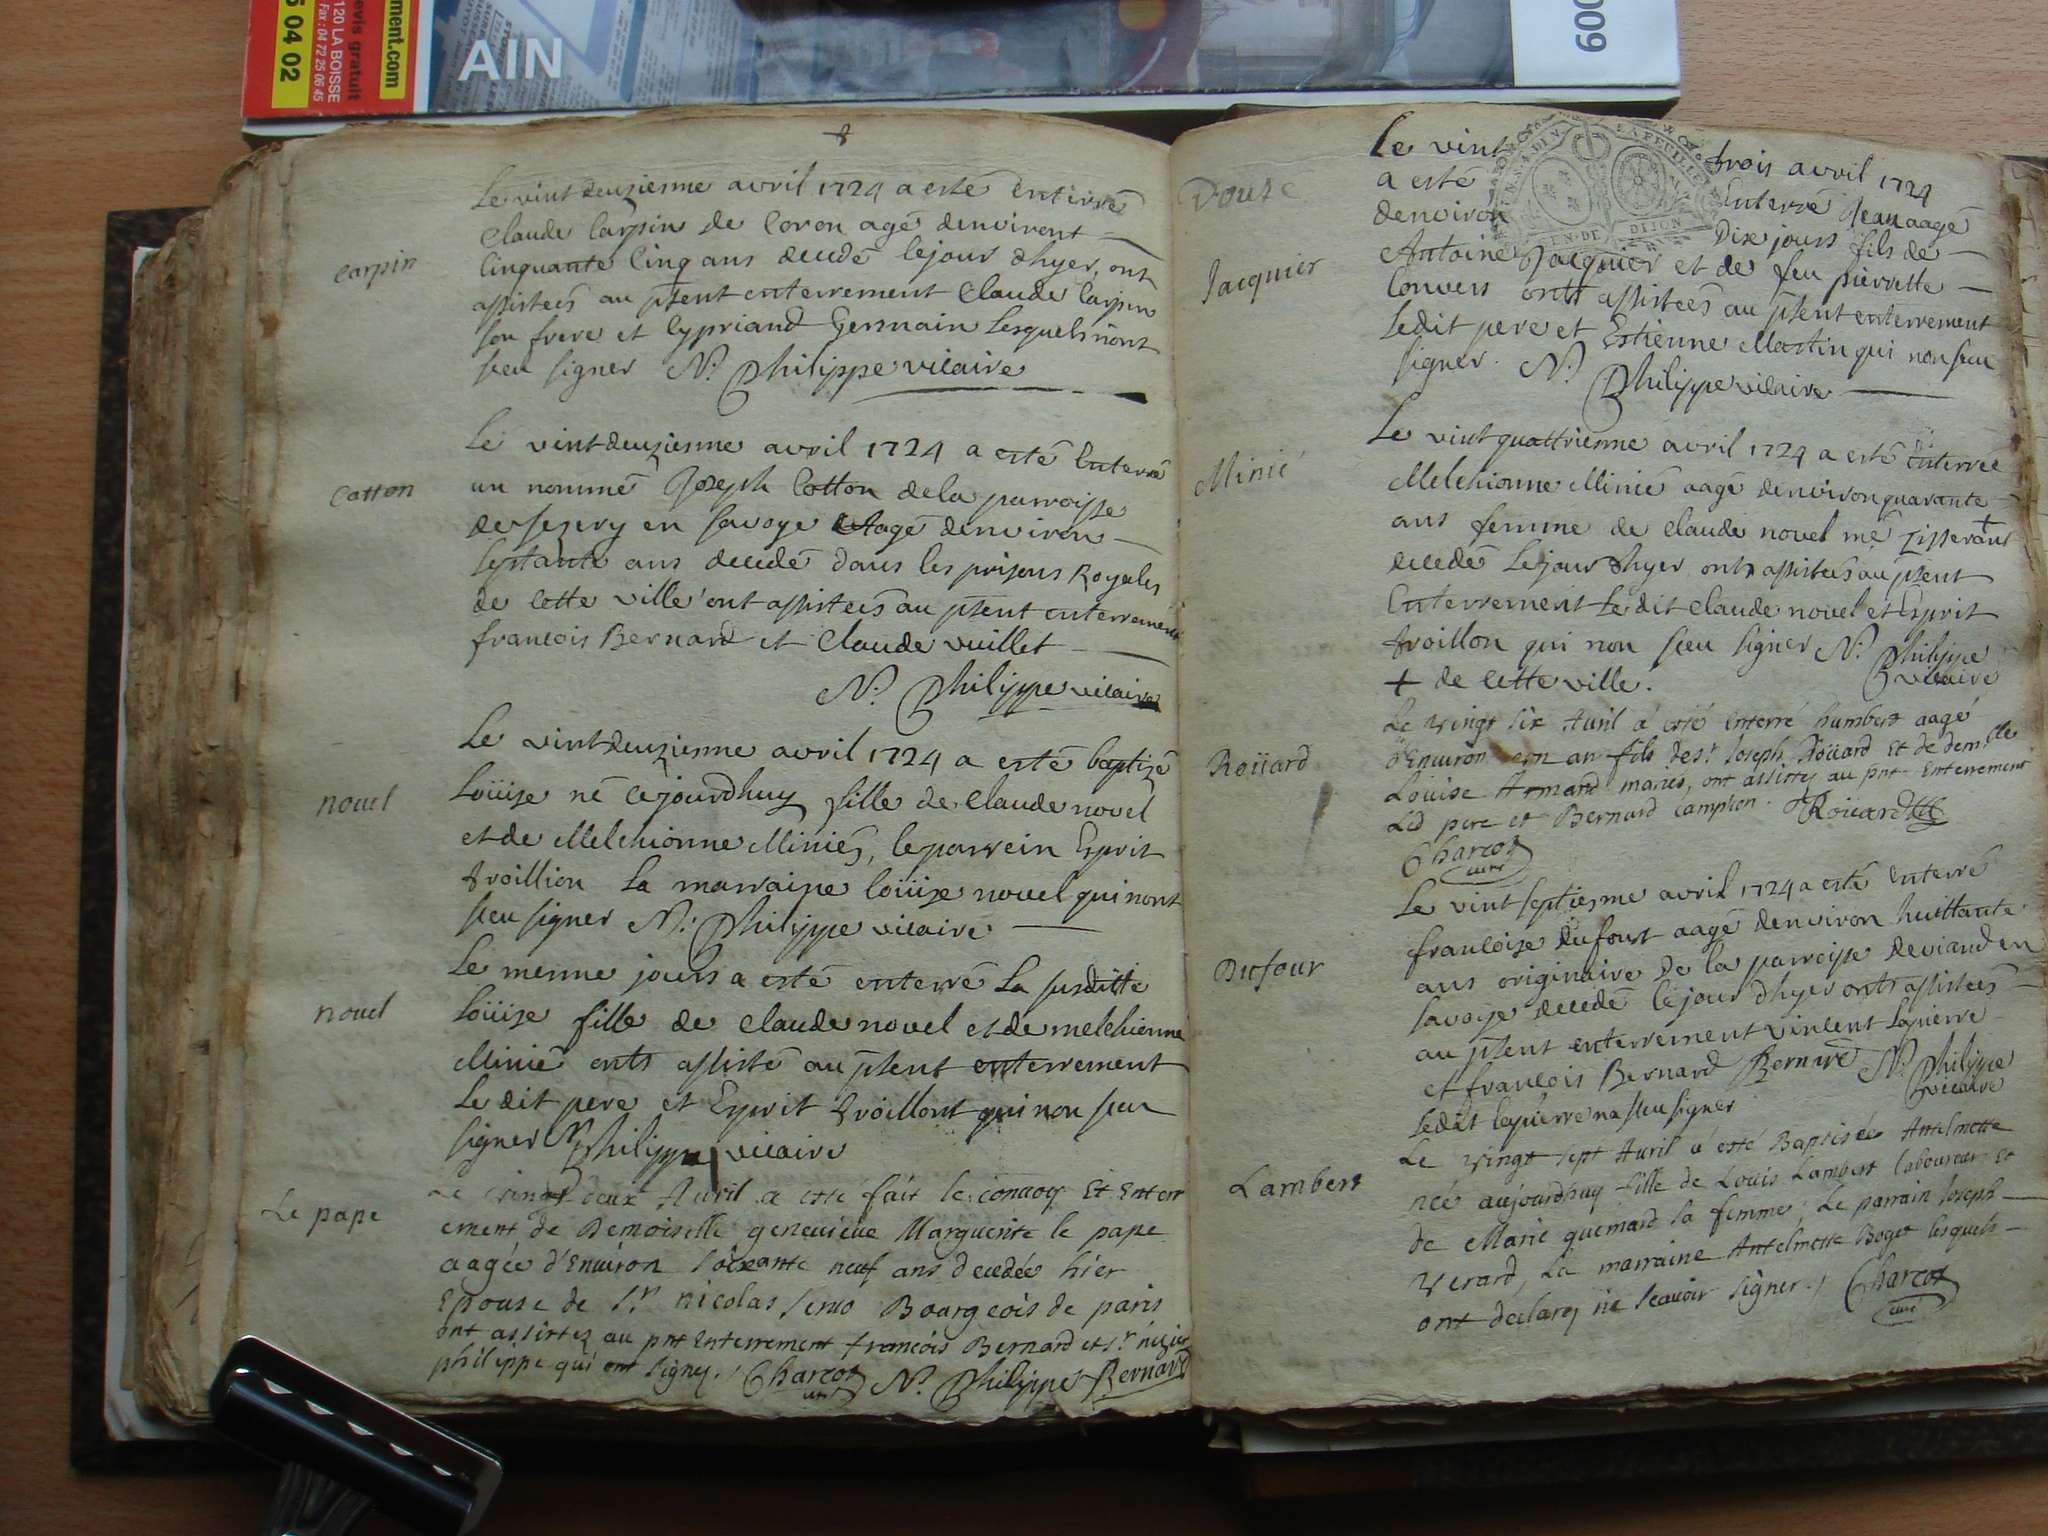 ment.com
evis gratuit
120 LA BOISSE
Fax : 04 72 25 06 45
5 04 02
AIN
009
Le vint deuziesme avril 1724 a esté Entérré
Claude Carpin de Coron agé denviront
carpin
Cinquante Cinq ans decedé lejour dhyer, ont
assistees au pñent enterrement Claude Carpin
son frere et Cypriand Germain Lesquels nont
sceu signer N: Philippe vicaire
Le vintdeuziesme avril 1724 a esté Enterré
Cotton
un nommé Joseph Cotton dela parroisse
en savoye Aagé denviron
septante ans decedé dans les prisons Royales
de Cette ville ont assistees au pñent enterrement
francois Bernard et Claude vuillet
N: Philippe vicaire
Le vintdeuziesme avril 1724 a esté baptizé
nouel
Loüize né Cejourdhuy fille de Claude novel
et de Melchionne Miniés, le parrein Esprit
troillion La marraine loüize novel qui nont
sceu signer N: Philippe vicaire
Le mesme jours a esté enterré La susditte
nouel
Loüize fille de Claude novel et de melchionne
Minié onts assisté au pñent enterrement
Le dit pere et Esprit troillont qui non sceu
signer N Philippe vicaire
Le vingt deux Avril a esté fait le convoy Et Enterr
ement de Demoiselle genevieve Marguerite le pape
Le pape
aagée d'Environ soixante neuf ans decedée hier
Epouse de Sr nicolas Bourgeois de paris
ont assistez au pnt Enterrement francois Bernard et Sr nizier
philippe qui ont signez. / Charcot curé N. Philippe Bernard
Douze
Le vint trois avril 1724
a esté Enterré Jean aagé
denviron Dix jours fils de
Jacquier
Antoine Jacquier et de feu pierrette
Convers onts assistees au pñent enterrement
Ledit pere et Estienne Martin qui non sceu
signer. N: Philippe vicaire
Le vint quattriesme avril 1724 a esté Enterrée
Minié
Melchionne Minié aagé denviron quarante
ans femme de Claude novel me Tisserant +
decedé Lejour dhyer onts assistees au pñent
Enterrement Le dit Claude novel et Esprit
troillon qui non sceu signer N: Philippe
vicaire
+ de Cette ville.
Le vingt six Avril a esté Enterré humbert aagé
Roüard
d'Environ un an fils de Sr Joseph Roüard et de demlle
Louise Armand mariés, ont assistez au pnt Enterrement
Led pere et Bernard campion. Roüard
Charcot
curé
Le vint septiesme avril 1724 a esté enterré
Dufour
francoise dufourt aagé denviron huittante
ans originaire de la parroisse deviand en
savoye decedé lejour dhyer onts assistees
au pñent enterrement vincent Lapierre
et francois Bernard Bernard N: Philippe
vicaire
Ledit lapierre na sceu signer
Le vingt sept Avril a esté Baptisée Antelmette
Lambert
née aujourdhuy fille de Louis Lambert laboureur Et
de Marie quemard sa femme. Le parrain Joseph
verard, La marraine Antelmette Boget lesquels
ont declarez ne scavoir signer. / Charcot
curé